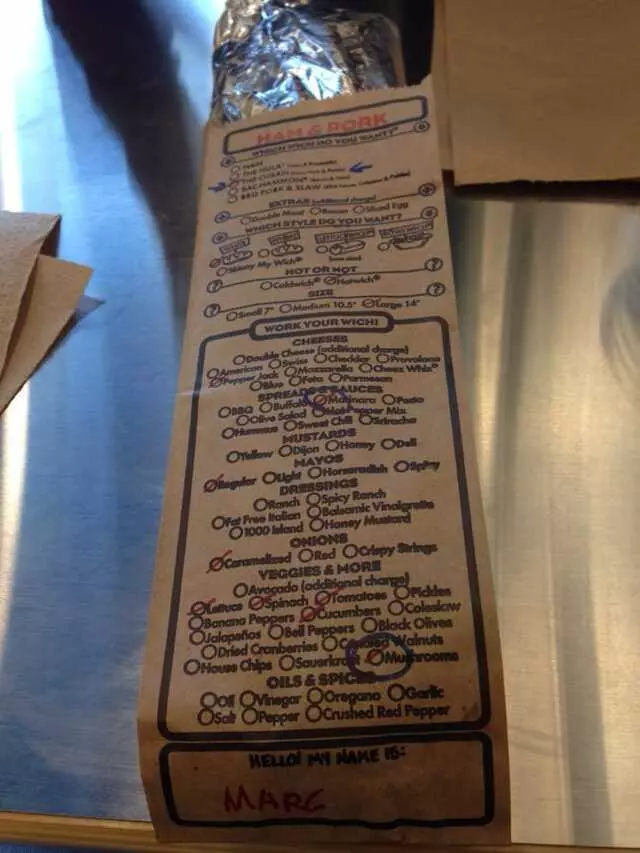 HAM & PORK
WHICH WICH DO YOU WANT?
HAM
THE HULA®
THE CUBAN
BACHAMMON®
BBQ PORK & SLAW
EXTRAS (additional charge)
Double Meat Bacon Sliced Egg
WHICH STYLE DO YOU WANT?
Skinny My Wich®
HOT OR NOT
Coldwich® Hotwich®
SIZE
Small 7" Medium 10.5" Large 14"
WORK YOUR WICH!
CHEESES
Double Cheese (additional charge)
American Swiss Cheddar Provolone
Pepper Jack Mozzarella Cheez Whiz®
Bleu Feta Parmesan
SPREADS & SAUCES
BBQ Buffalo Marinara Pesto
Olive Salad Hot Pepper Mix
Hummus Sweet Chili Sriracha
MUSTARDS
Yellow Dijon Honey Deli
MAYOS
Regular Light Horseradish Spicy
DRESSINGS
Ranch Spicy Ranch
Fat Free Italian Balsamic Vinaigrette
1000 Island Honey Mustard
ONIONS
Caramelized Red Crispy Strings
VEGGIES & MORE
Avocado (additional charge)
Lettuce Spinach Tomatoes Pickles
Banana Peppers Cucumbers Coleslaw
Jalapeños Bell Peppers Black Olives
Dried Cranberries Candied Walnuts
House Chips Sauerkraut Mushrooms
OILS & SPICES
Oil Vinegar Oregano Garlic
Salt Pepper Crushed Red Pepper
HELLO! MY NAME IS:
MARC